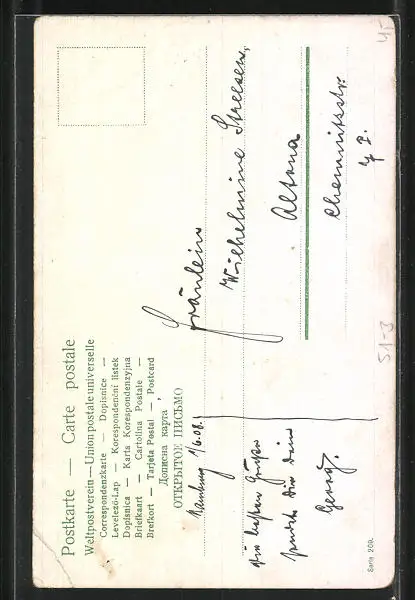 Postkarte — Carte postale
Weltpostverein — Union postale universelle
Correspondenzkarte — Dopisnice —
Levelező-Lap — Korespondenční lístek
Dopisnica — Karta Korespondenzyjna
Briefkaart — Cartolina Postale —
Brefkort — Tarjeta Postal — Postcard
Дописна карта
ОТКРЫТОЕ ПИСЬМО
Hamburg 1/6.08.
die besten Grüße
sendet dir dein
Georg.
Serie 209.
Fräulein
Wilhelmine
Altona
Chemnitzstr.
51-3